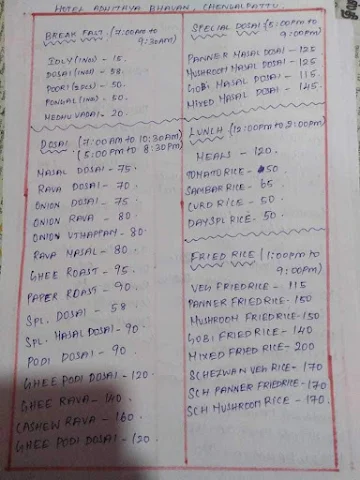 HOTEL ADHITHYA BHAVAN, CHENGALPATTU.
BREAK FAST. (7:00AM to 9:30AM)
IDLY (1NO) - 15.
DOSAI (1NO) - 58.
POORI (2PCS) - 50.
PONGAL (1NO) - 50.
MEDHU VADAI - 20.
DOSAI (7:00AM to 10:30AM)
(5:00PM to 8:30PM)
MASAL DOSAI - 75.
RAVA DOSAI - 70.
ONION DOSAI - 75.
ONION RAVA - 80.
ONION UTHAPPAM - 80.
RAVA MASAL - 80.
GHEE ROAST - 95.
PAPER ROAST - 90.
SPL. DOSAI - 58
SPL. MASAL DOSAI - 90.
PODI DOSAI - 90.
GHEE PODI DOSAI - 120.
GHEE RAVA - 140.
CASHEW RAVA - 160.
GHEE PODI DOSAI - 120.
SPECIAL DOSAI (5:00PM to
9:00PM)
PANNER MASAL DOSAI - 125
MUSHROOM MASAL DOSAI - 125
GOBI MASAL DOSAI - 115.
MIXED MASAL DOSAI - 145.
LUNCH (12:00PM to 2:00PM)
MEALS - 120.
TOMATO RICE - 50.
SAMBAR RICE - 65
CURD RICE - 50.
DAY SPL RICE - 50.
FRIED RICE (1:00PM to
9:00PM)
VEG FRIED RICE - 115
PANNER FRIED RICE - 150
MUSHROOM FRIED RICE - 150
GOBI FRIED RICE - 140
MIXED FRIED RICE - 200
SCHEZWAN VEG RICE - 170
SCH PANNER FRIED RICE - 170
SCH MUSHROOM RICE - 170.